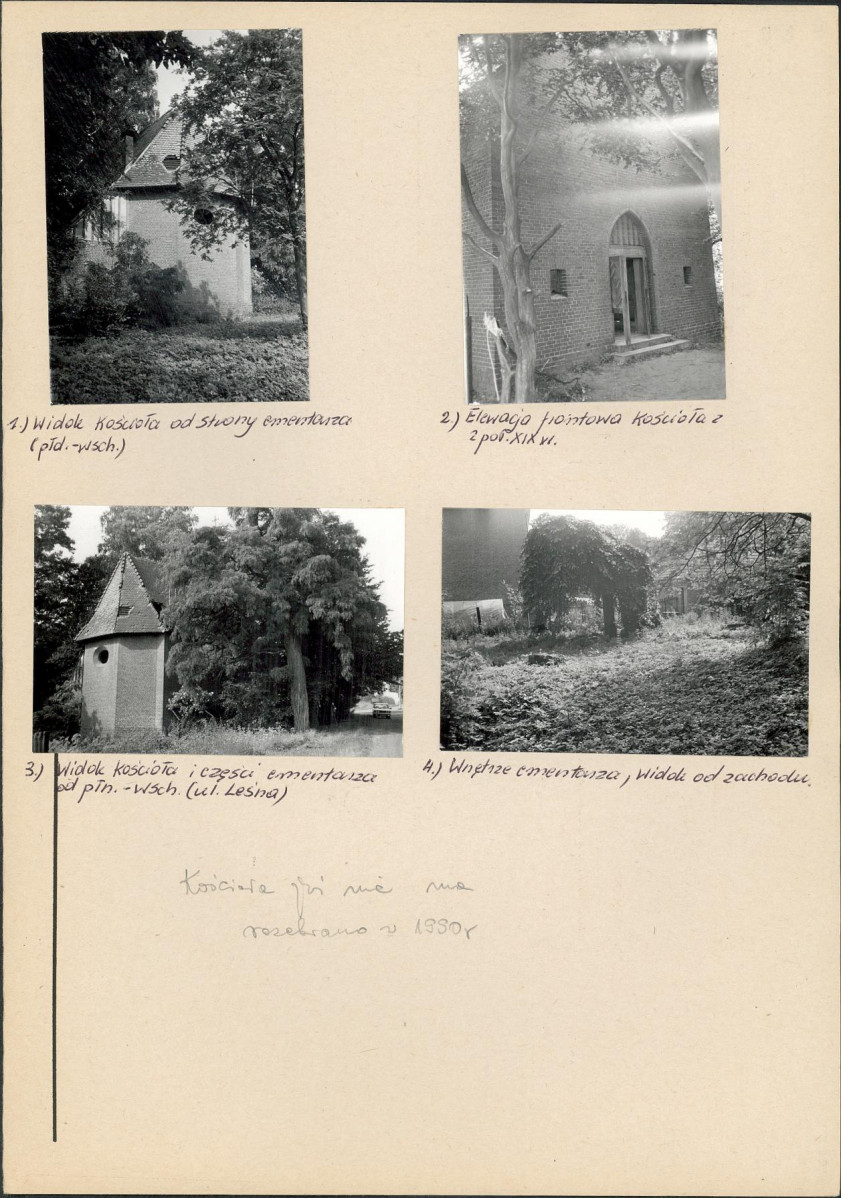 1.) Widok kościoła od strony cmentarza
(płd.-wsch.)
2.) Elewacja frontowa kościoła z
2 poł. XIX w.
3.) Widok kościoła i części cmentarza
od płn.-wsch. (ul. Leśna)
4.) Wnętrze cmentarza, widok od zachodu.
Kościoła już nie ma
rozebrano w 1990r